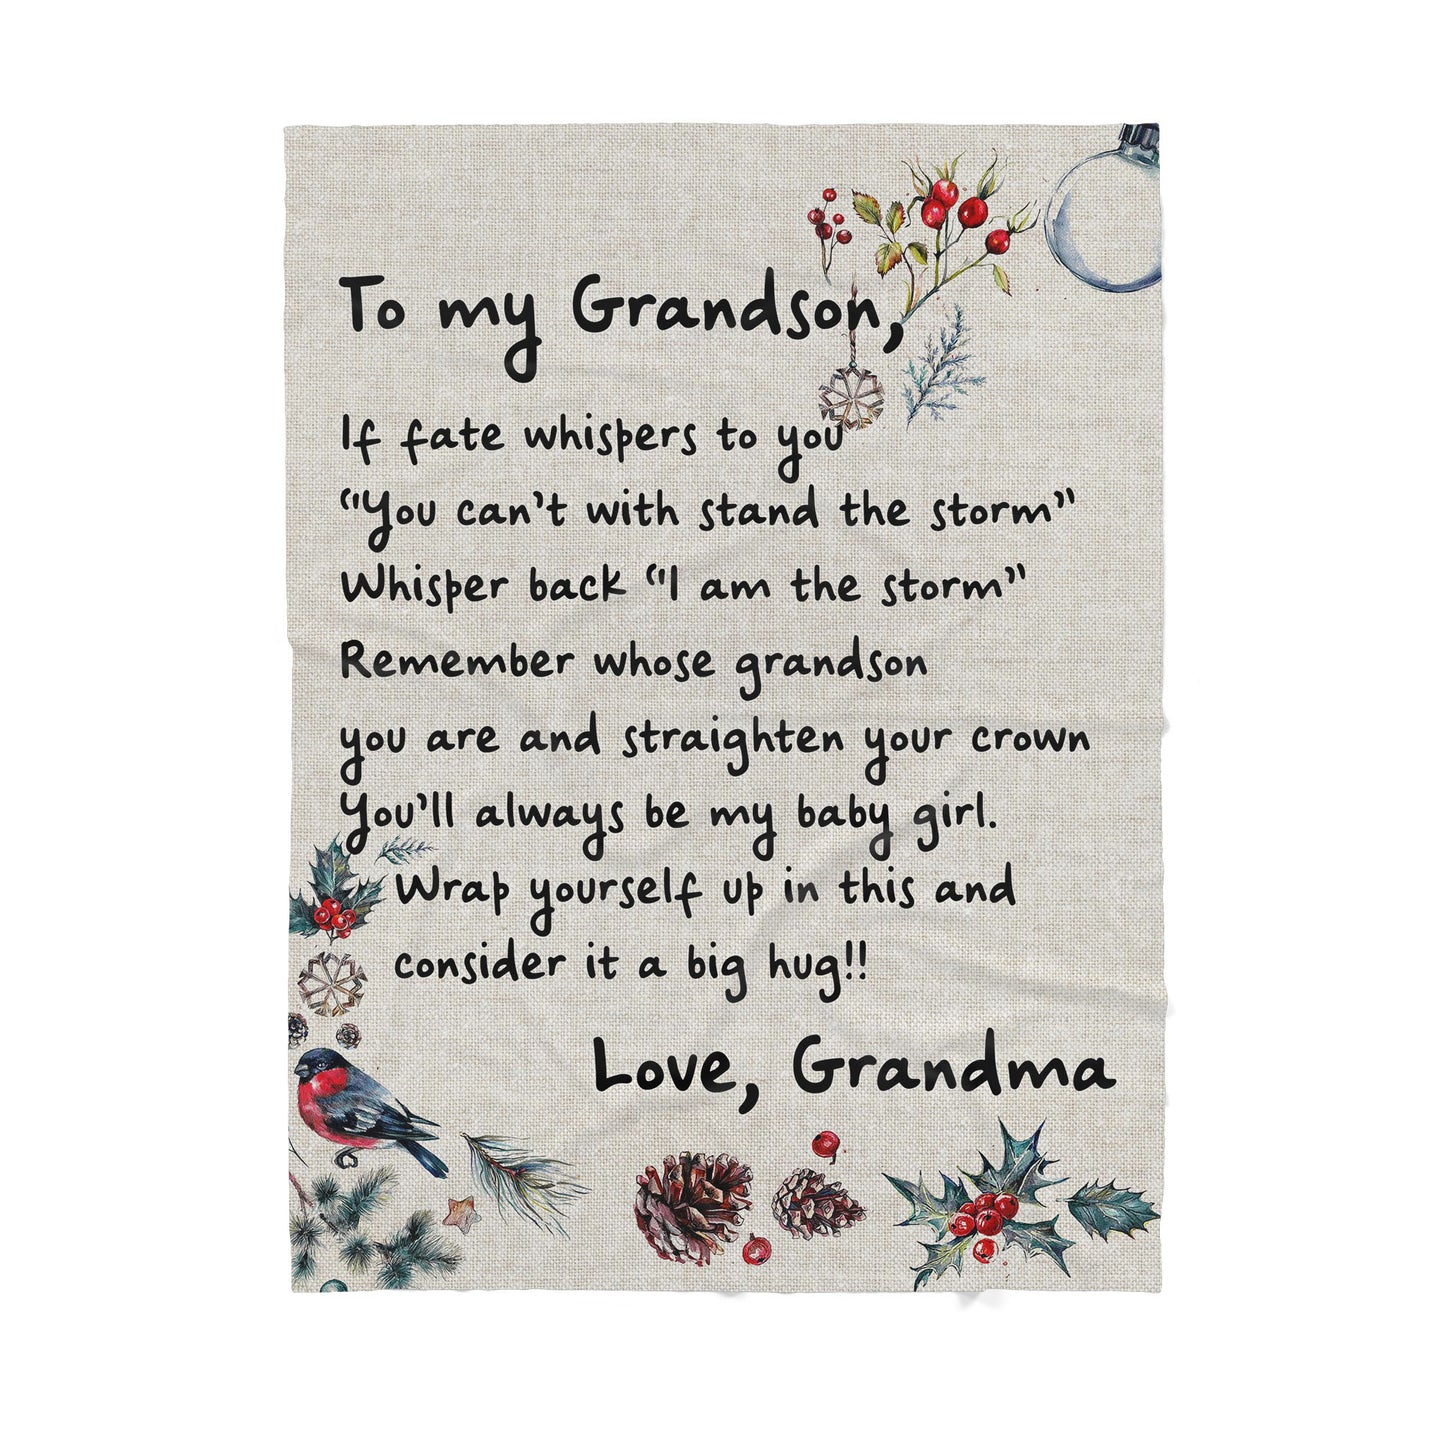 To my Grandson,
If fate whispers to you
“You can’t with stand the storm”
Whisper back “I am the storm”
Remember whose grandson
you are and straighten your crown
You’ll always be my baby girl.
Wrap yourself up in this and
consider it a big hug!!
Love, Grandma